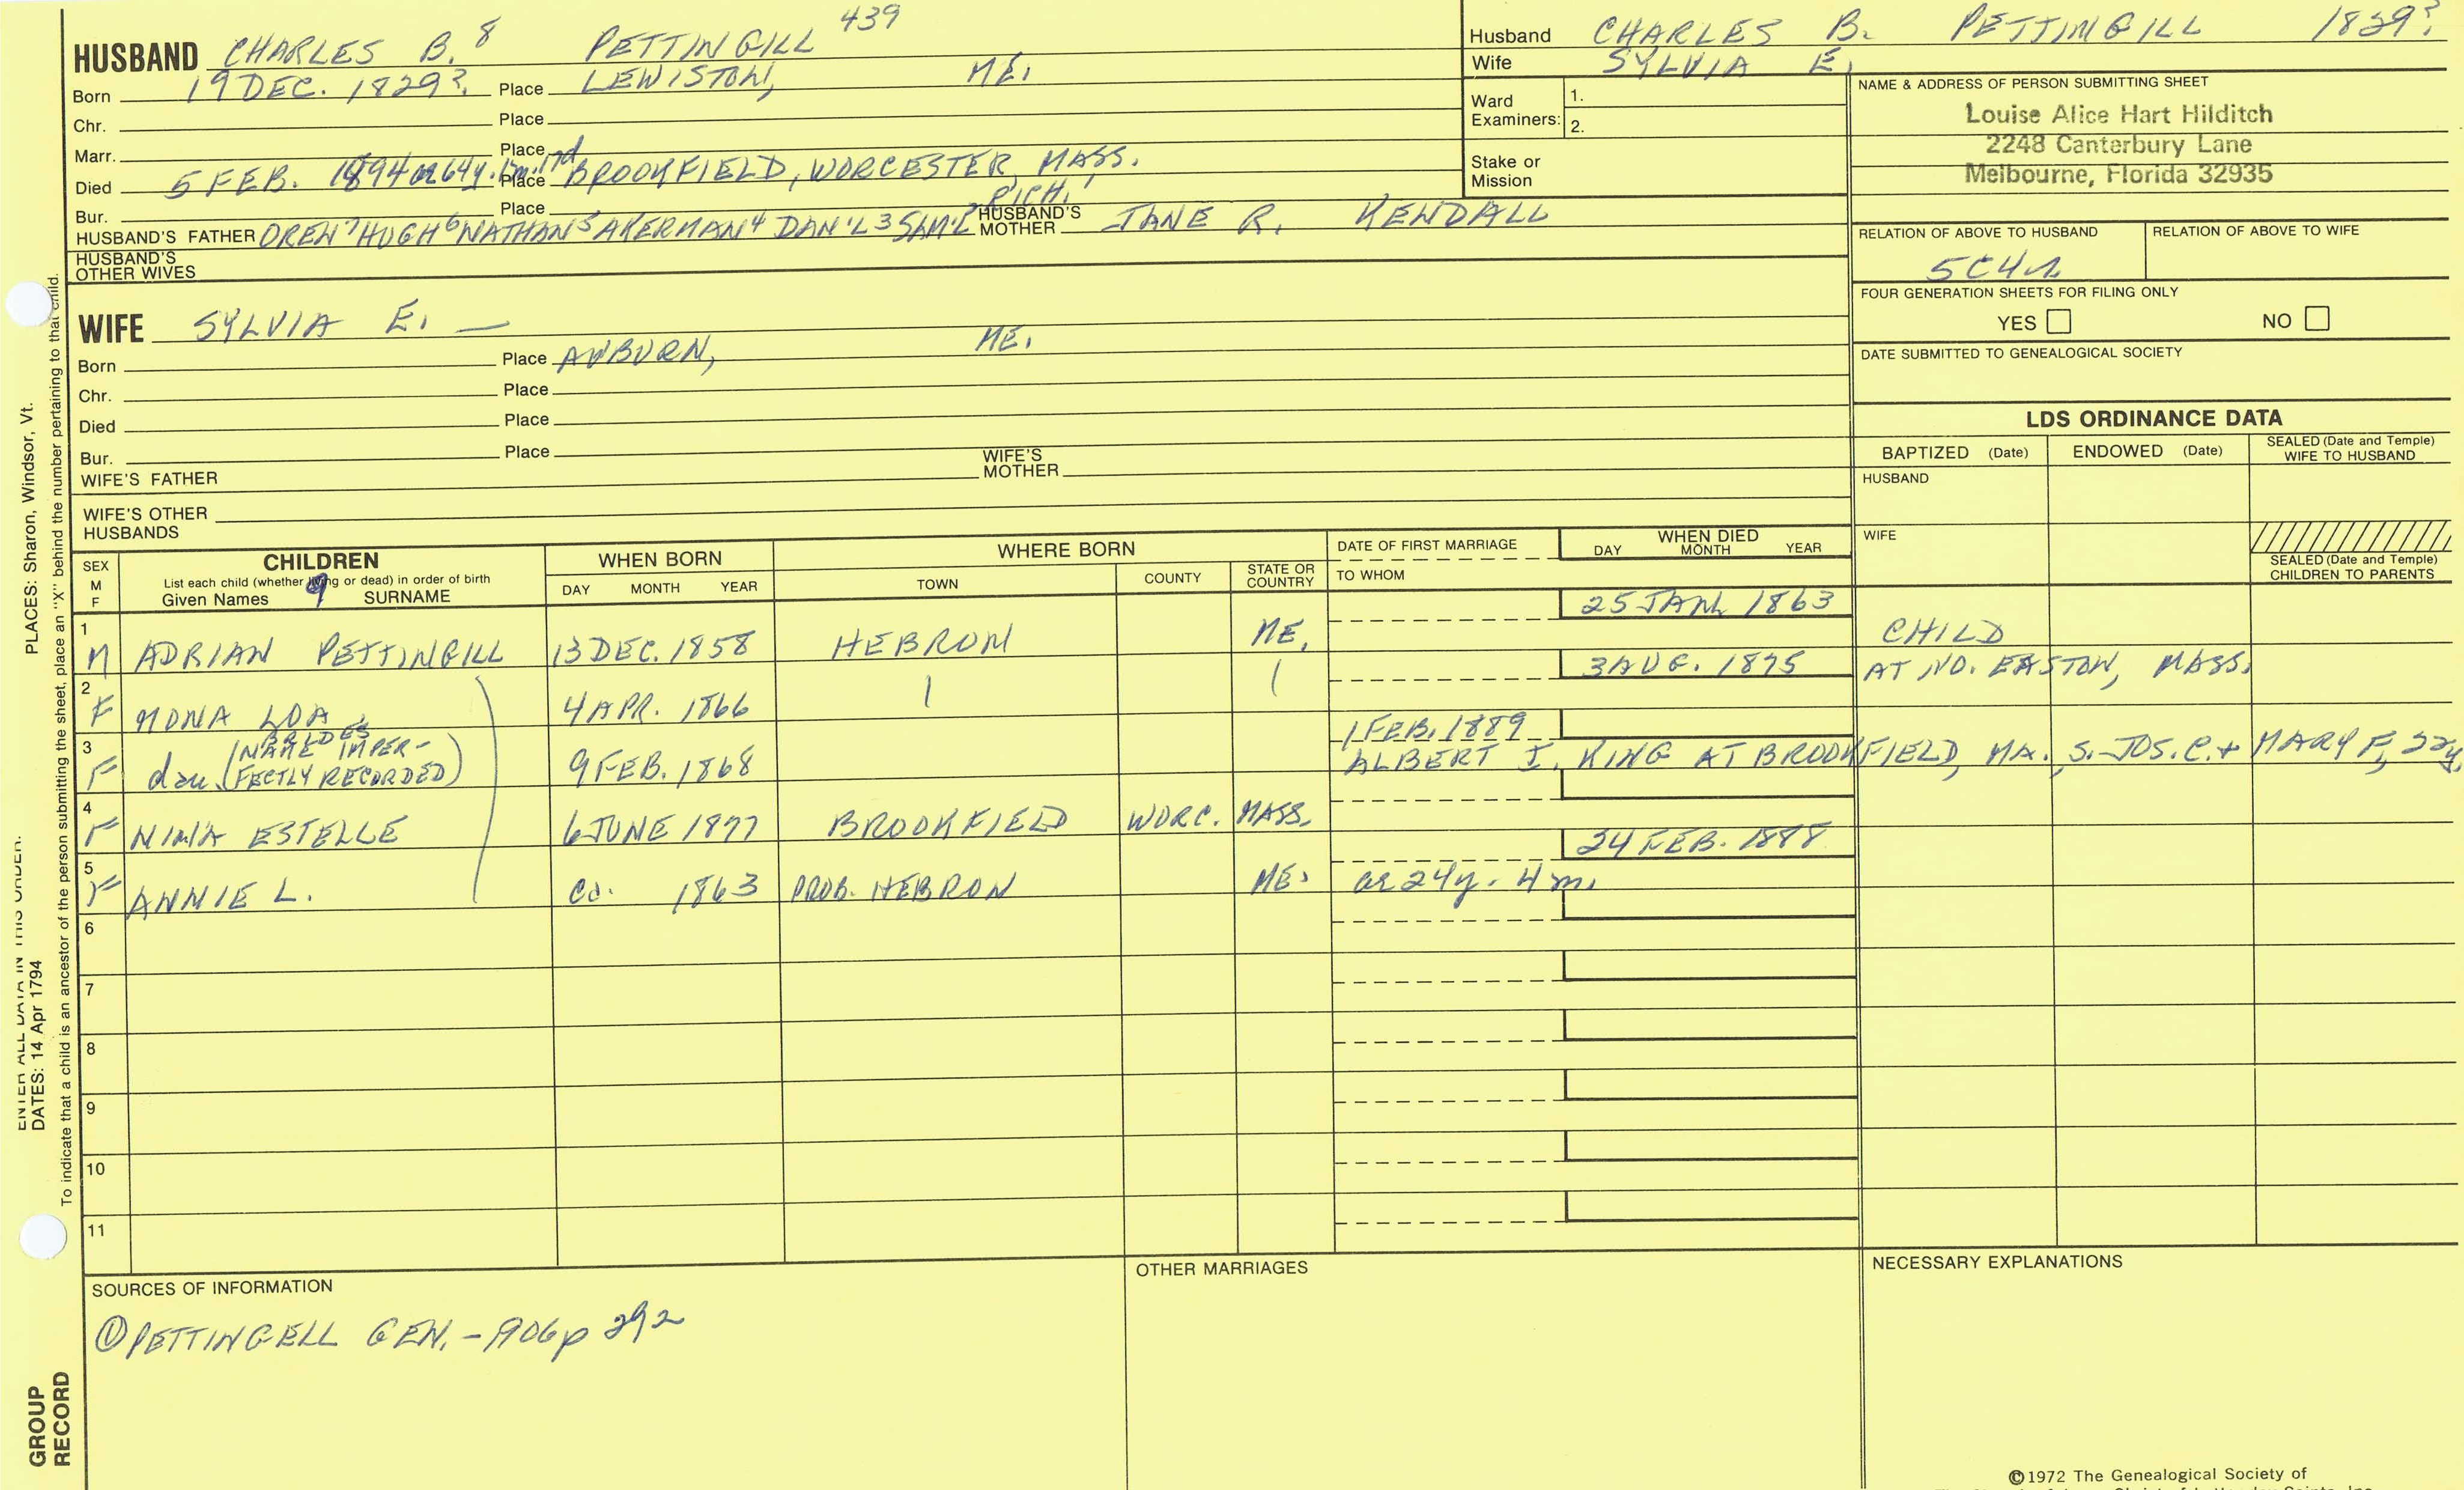 HUSBAND CHARLES B.8 PETTINGILL 439
Born 19 DEC. 1829? Place LEWISTON, ME.
Chr. Place
Marr. Place
Died 5 FEB. 1894 Place BROOKFIELD, WORCESTER, MASS.
Bur. Place
RICH.1
HUSBAND'S FATHER OREN7 HUGH6 NATHAN5 AKERMAN4 DAN'L3 SAM'L2 HUSBAND'S MOTHER JANE R. KENDALL
HUSBAND'S OTHER WIVES
WIFE SYLVIA E. —
Born Place AUBURN, ME.
Chr. Place
Died Place
Bur. Place
WIFE'S FATHER WIFE'S MOTHER
WIFE'S OTHER HUSBANDS
Husband CHARLES B. PETTINGILL 1829?
Wife SYLVIA E.
Ward Examiners: 1.
2.
Stake or Mission
NAME & ADDRESS OF PERSON SUBMITTING SHEET
Louise Alice Hart Hilditch
2248 Canterbury Lane
Melbourne, Florida 32935
RELATION OF ABOVE TO HUSBAND RELATION OF ABOVE TO WIFE
5C4r
FOUR GENERATION SHEETS FOR FILING ONLY
YES NO
DATE SUBMITTED TO GENEALOGICAL SOCIETY
LDS ORDINANCE DATA
BAPTIZED (Date) ENDOWED (Date) SEALED (Date and Temple) WIFE TO HUSBAND
HUSBAND
WIFE
SEALED (Date and Temple) CHILDREN TO PARENTS
SEX M F
CHILDREN
List each child (whether living or dead) in order of birth
Given Names 9 SURNAME
WHEN BORN
DAY MONTH YEAR
WHERE BORN
TOWN COUNTY STATE OR COUNTRY
DATE OF FIRST MARRIAGE
TO WHOM
WHEN DIED
DAY MONTH YEAR
1 M ADRIAN PETTINGILL 13 DEC. 1858 HEBRON ME. 25 JAN. 1863 CHILD
2 F MONA LOA 4 APR. 1866 3 AUG. 1875 AT NO. EASTON, MASS.
3 F dau. (NAME IMPER-FECTLY RECORDED) 9 FEB. 1868 1 FEB. 1889
ALBERT I. KING AT BROOKFIELD, MA., S. JOS. C. & MARY F., 22y.
4 F NINA ESTELLE 6 JUNE 1877 BROOKFIELD WORC. MASS.
5 F ANNIE L. ca. 1863 PROB. HEBRON ME. 24 FEB. 1888
ae 24y. 4m.
6
7
8
9
10
11
SOURCES OF INFORMATION
① PETTINGELL GEN. - 1906 p 292
OTHER MARRIAGES
NECESSARY EXPLANATIONS
©1972 The Genealogical Society of
PLACES: Sharon, Windsor, Vt.
To indicate that a child is an ancestor of the person submitting the sheet, place an "X" behind the number pertaining to that child.
ENTER ALL DATA IN THIS ORDER:
DATES: 14 Apr 1794
GROUP
RECORD